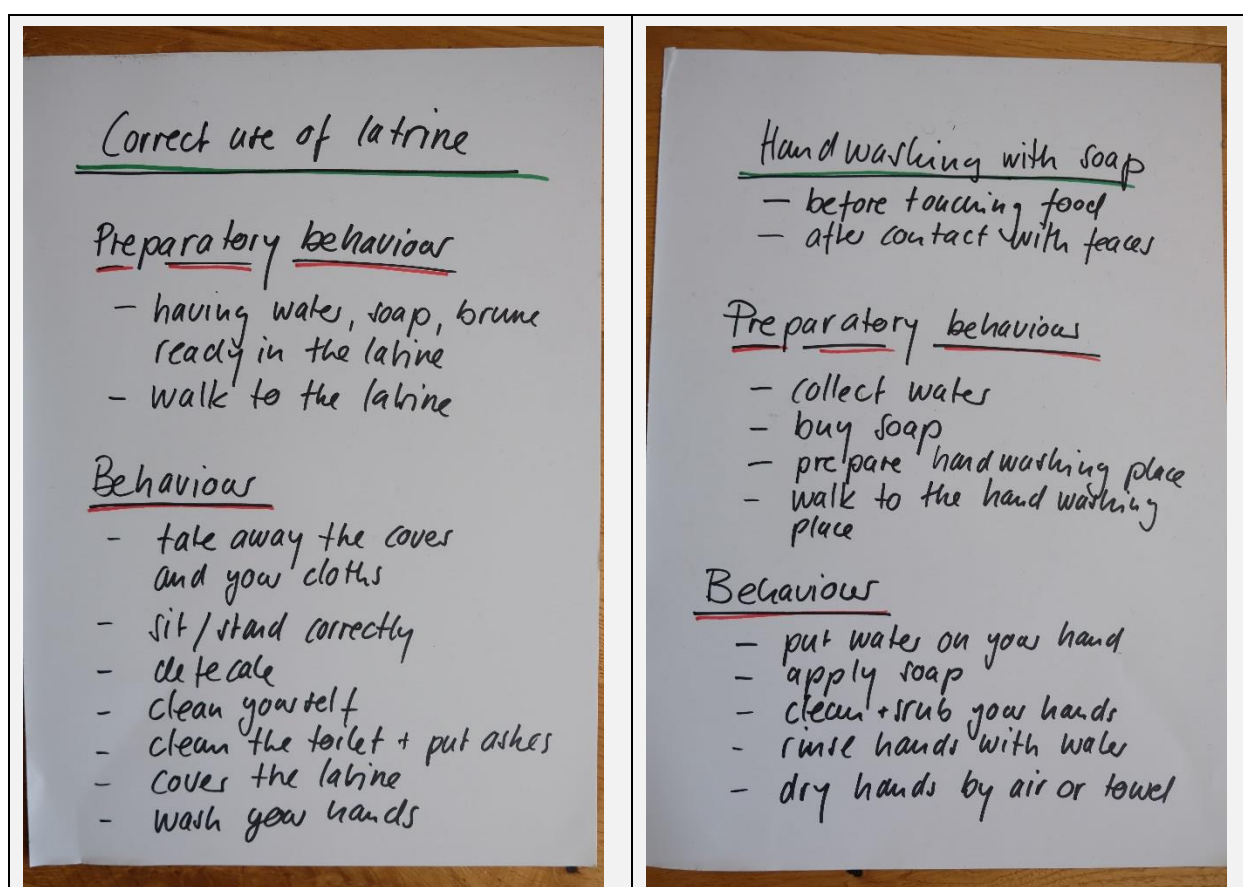 Correct use of latrine
Preparatory behaviour
- having water, soap, brune
ready in the latrine
- walk to the latrine
Behaviour
- take away the cover
and your cloths
- sit/stand correctly
- defecate
- clean yourself
- clean the toilet + put ashes
- cover the latrine
- wash your hands
Handwashing with soap
- before touching food
- after contact with feaces
Preparatory behaviour
- collect water
- buy soap
- prepare handwashing place
- walk to the hand washing
place
Behaviour
- put water on your hand
- apply soap
- clean + scrub your hands
- rinse hands with water
- dry hands by air or towel